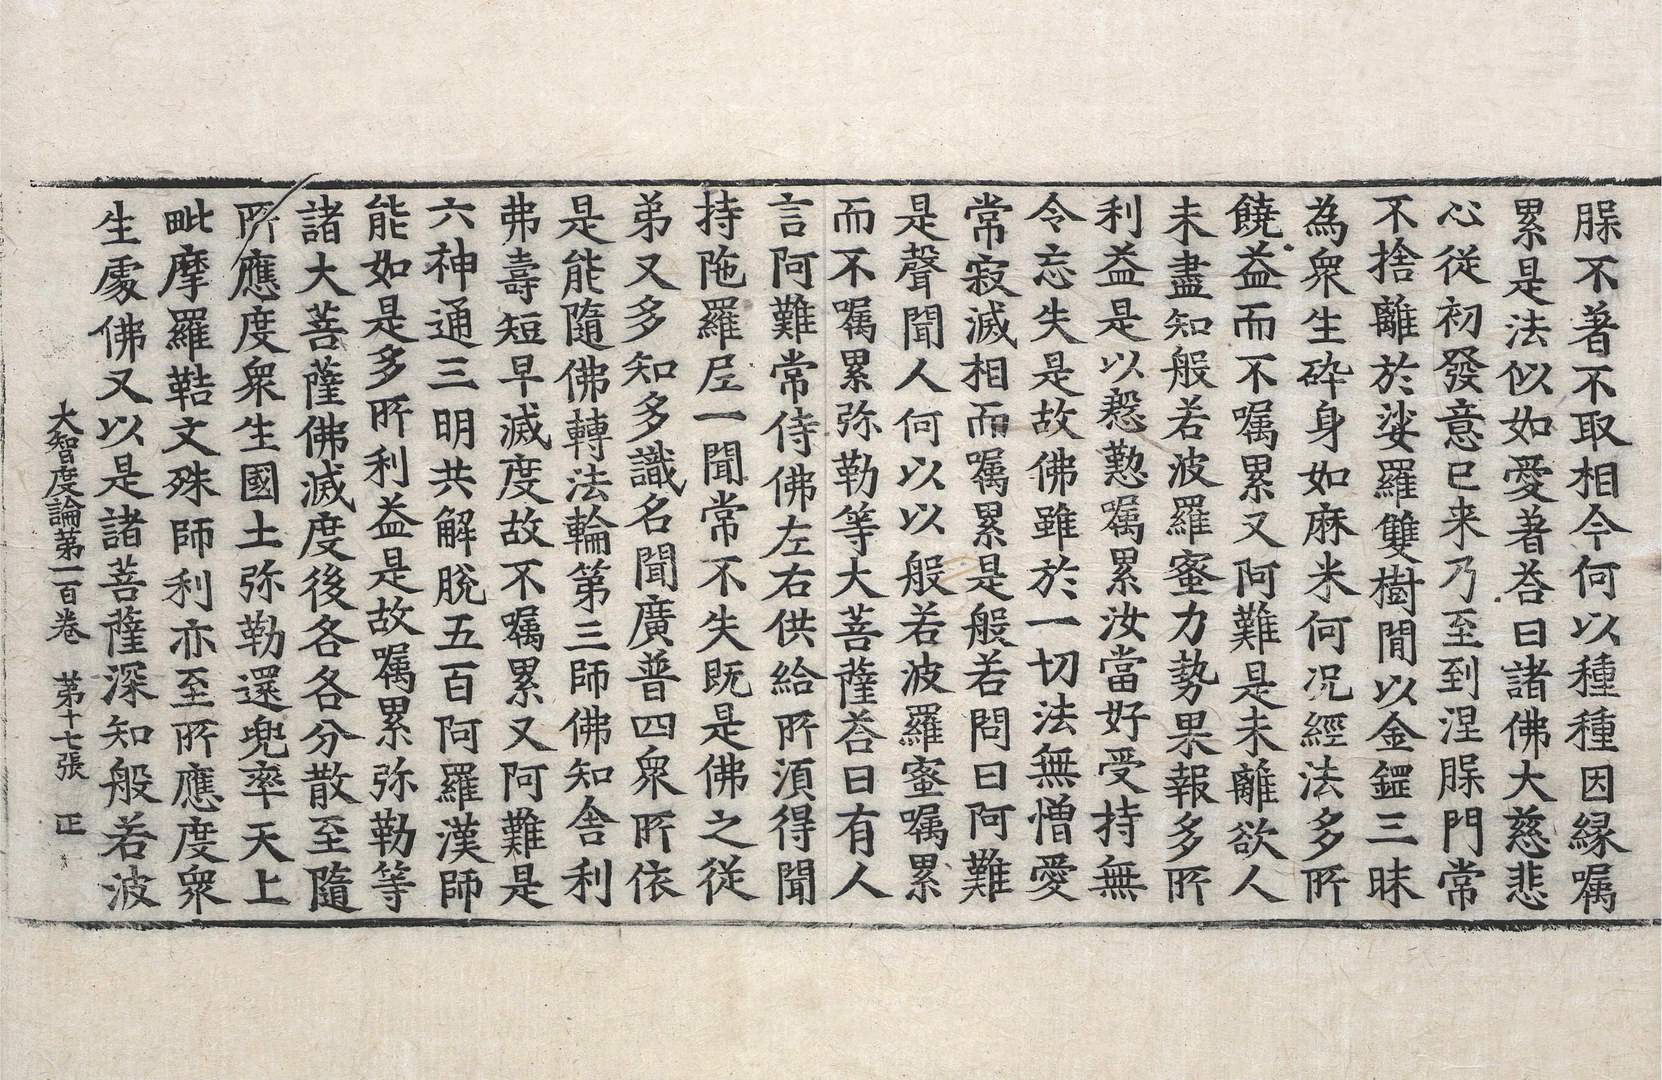 脲不著不取相今何以種種因縁嘱
累是法似如愛著荅曰諸佛大慈悲
心從初發意已来乃至到涅脲門常
不捨離於娑羅雙樹閒以金𨮜三昧
為衆生碎身如麻米何况經法多所
饒益而不嘱累又阿難是未離欲人
未盡知般若波羅蜜力勢果報多所
利益是以慇懃嘱累汝當好受持無
令忘失是故佛雖於一切法無憎愛
常寂滅相而嘱累是般若問曰阿難
是聲聞人何以以般若波羅蜜嘱累
而不嘱累弥勒等大菩薩荅曰有人
言阿難常侍佛左右供給所湏得聞
持陁羅𡰱一聞常不失既是佛之從
弟又多多知多識名聞廣普四衆所依
是能隨佛轉法輪第三師佛知舎利
弗壽短早滅度故不嘱累又阿難是
六神通三明共解脫五百阿羅漢師
能如是多所利益是故嘱累弥勒等
諸大菩薩佛滅度後各各分散至隨
所應度衆生國土弥勒還兜率天上
毗摩羅鞊文殊師利亦至所應度衆
生處佛又以是諸菩薩深知般若波
大智度論第一百卷 第十七張 正